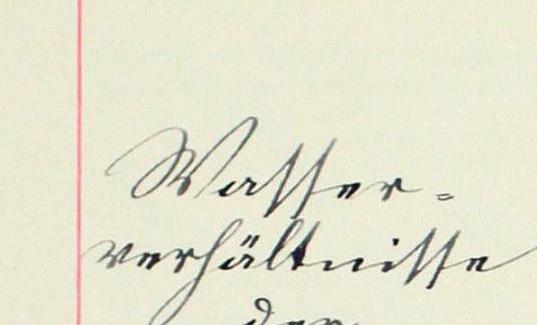 Wasser-
verhältnisse
der